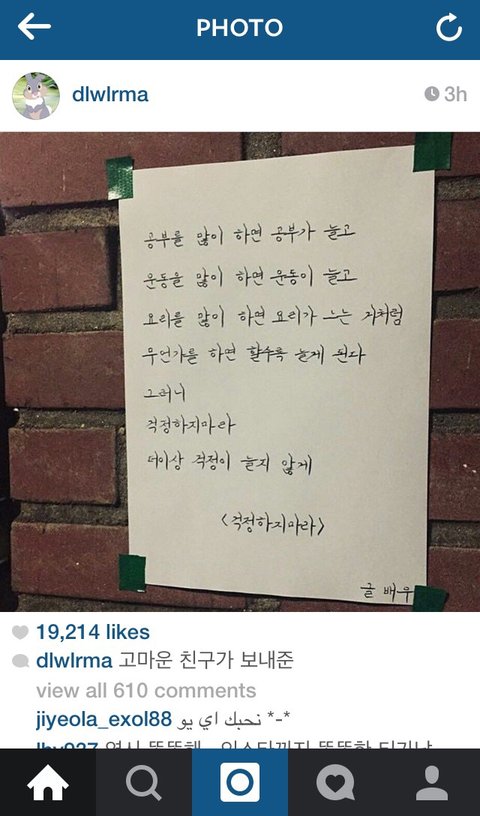 PHOTO
dlwlrma 3h
공부를 많이 하면 공부가 늘고
운동을 많이 하면 운동이 늘고
요리를 많이 하면 요리가 느는 거처럼
무언가를 하면 할수록 늘게 된다
그러니
걱정하지마라
더이상 걱정이 늘지 않게
<걱정하지마라>
글 배우
19,214 likes
dlwlrma 고마운 친구가 보내준
view all 610 comments
jiyeola_exol88 نحبك اي يو *-*